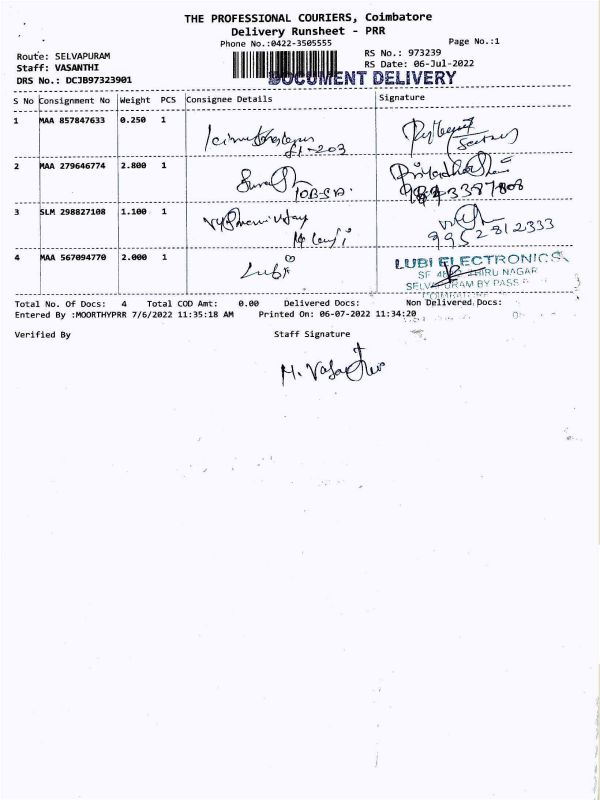 THE PROFESSIONAL COURIERS, Coimbatore
Delivery Runsheet - PRR
Phone No.:0422-3505555
Page No.:1
Route: SELVAPURAM
RS No.: 973239
Staff: VASANTHI
RS Date: 06-Jul-2022
DRS No.: DCJB97323901
DOCUMENT DELIVERY
S No Consignment No Weight PCS Consignee Details Signature
1 MAA 857847633 0.250 1
G1-203
2 MAA 279646774 2.800 1
3 SLM 298827108 1.100 1
9952812333
4 MAA 567094770 2.000 1 Lubi
LUBI ELECTRONICS
NAGAR
BY PASS
Total No. Of Docs: 4 Total COD Amt: 0.00 Delivered Docs: Non Delivered Docs:
Entered By :MOORTHYPRR 7/6/2022 11:35:18 AM Printed On: 06-07-2022 11:34:20
Verified By Staff Signature